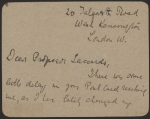 20 Talgarth Road
West Kensington
London W.
Dear Professor
There was some
little delay in your Post Card reaching
me, as I have lately changed my